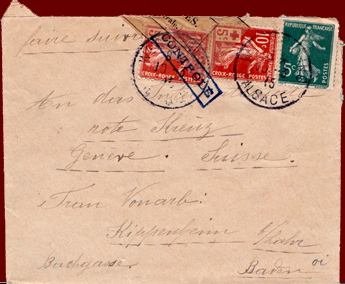 faire suivre
CONTRÔLE
10c
5c
CROIX-ROUGE POSTES
CROIX-ROUGE POSTES
REPUBLIQUE FRANÇAISE
5c
POSTES
ALSACE
An das
rote Kreuz
Genève. Suisse.
Frau Vonarbi
Kippenheim
Lahr
Bachgasse. Baden